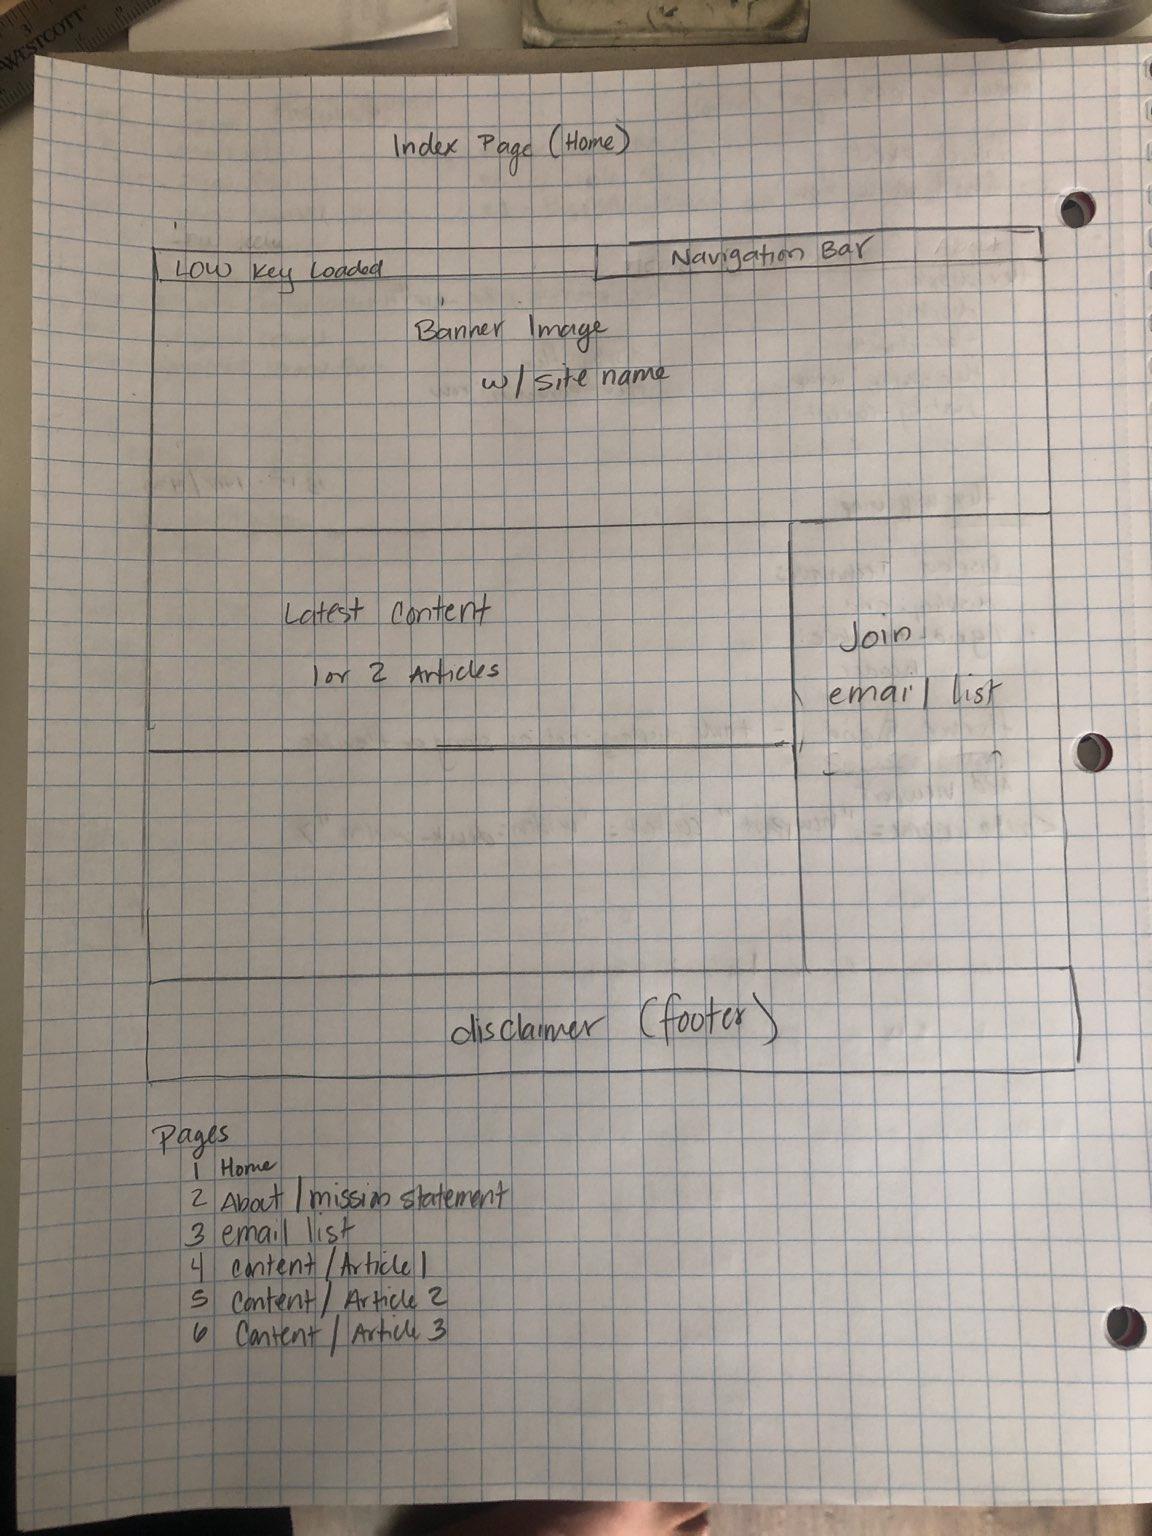 WESTCOTT
3
Index Page (Home)
Low Key Loaded
Navigation Bar
Banner Image
w/ site name
Latest Content
1 or 2 Articles
Join
email list
disclaimer (footer)
Pages
1 Home
2 About / mission statement
3 email list
4 Content / Article 1
5 Content / Article 2
6 Content / Article 3